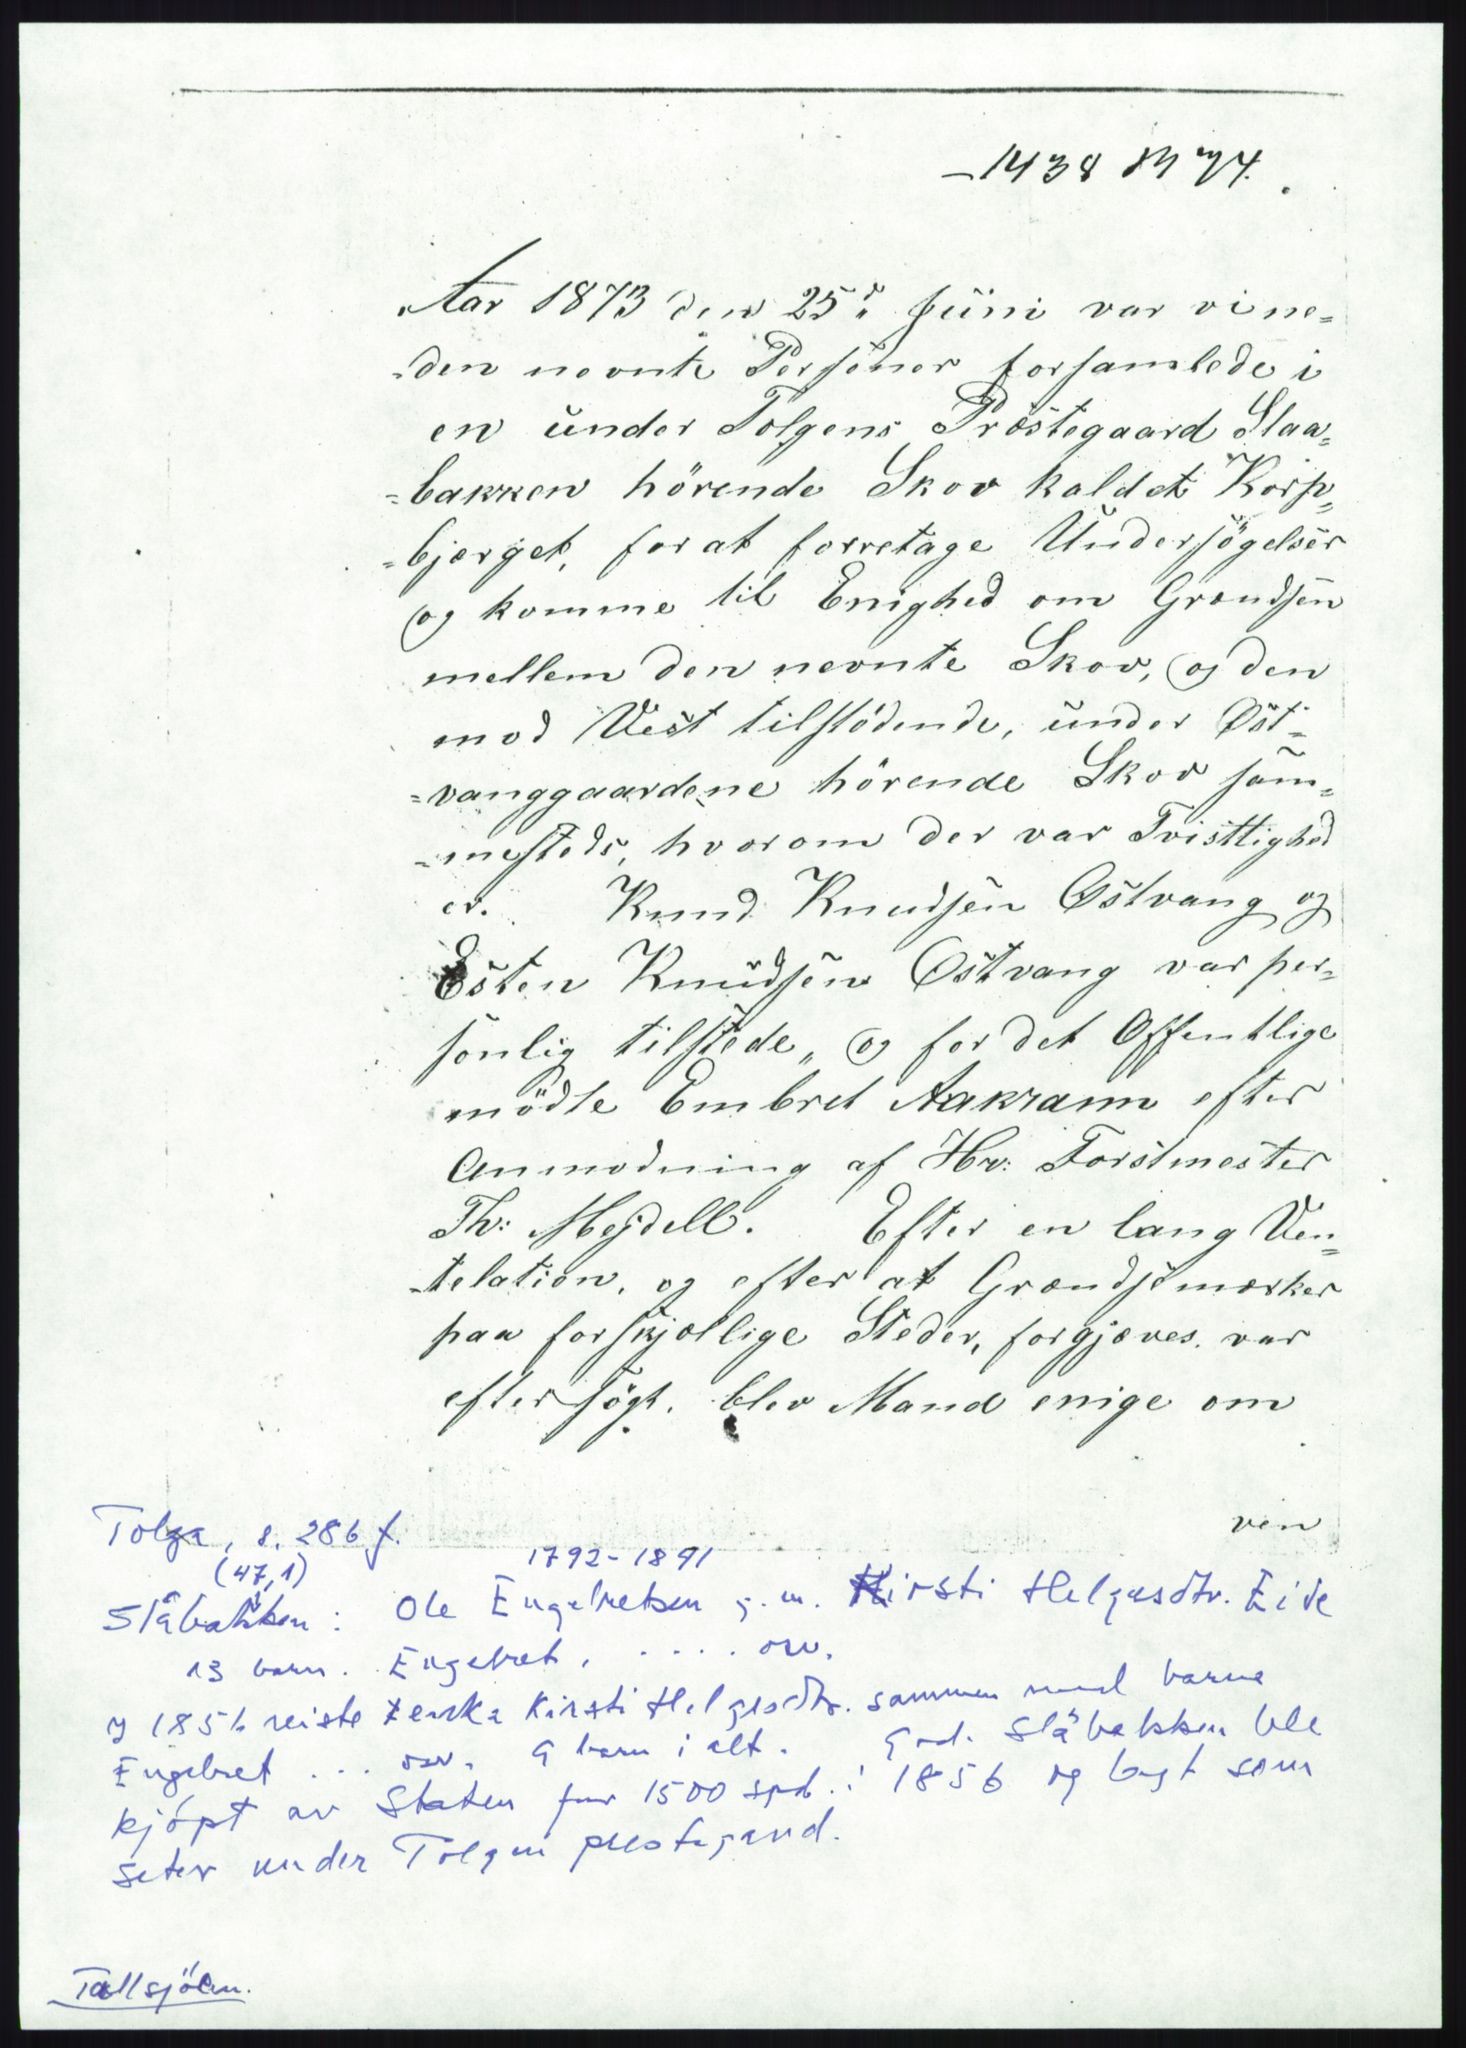 1438 M 74.
Aar 1873 den 25de Juni var vi ne=
=den nevnte Personer forsamlede i
en under Tolgens Præstegaard Slaa=
=bakken hörende Skov kaldet Korp=
=bjerget, for at forretage Undersögelser
og komme til Enighed om Grændsen
mellem den nevnte Skov, og den
mod Vest tilstödende, under Öst=
=vanggaardene hörende Skov sam=
=mesteds, hvorom der var Tvisttighed
er. Knud Knudsen Östvang og
Esten Knudsen Östvang var per=
sonlig tilstede, og for det Offentlige
mödte Embret Aakrann efter
Anmodning af Hr: Forstmester
Th: Mejdell. Efter en lang Ven=
=telation, og efter at Grændsemærker
paa forskjællige Steder, forgjæves var
eftersögt, blev Mand enige om
ven
Tolga, s. 286 f.
(47,1) 1792-1891
Slåbakken: Ole Engebretsen g.m. Kirsti Helgesdtr. Eide
13 barn. Engebret, .... osv.
I 1856 reiste enka Kirsti Helgesdtr. sammen med barna
Engebret ... osv. 9 barn i alt. Grd. Slåbakken ble
kjöpt av Staten for 1500 spd. i 1856 og lagt som
seter under Tolgen prestegaard.
Tallsjöen.